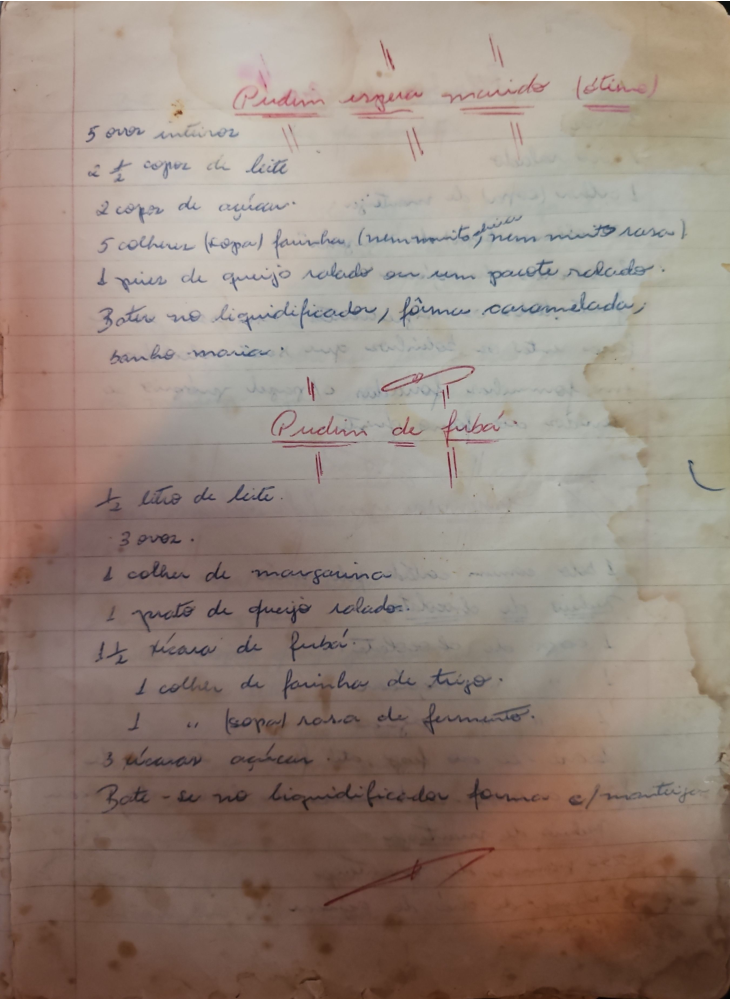 Pudim espera marido (ótimo)
5 ovos inteiros
2 1/2 copos de leite
2 copos de açúcar.
5 colheres (sopa) farinha (nem muito cheia, nem muito rasa)
1 pires de queijo ralado ou um pacote ralado.
Bater no liquidificador, fôrma caramelada,
banho maria.
Pudim de fubá
1/2 litro de leite.
3 ovos.
1 colher de margarina
1 prato de queijo ralado.
1 1/2 xícara de fubá.
1 colher de farinha de trigo.
1 " (sopa) rasa de fermento.
3 xícaras açúcar.
Bate-se no liquidificador forma c/ manteiga